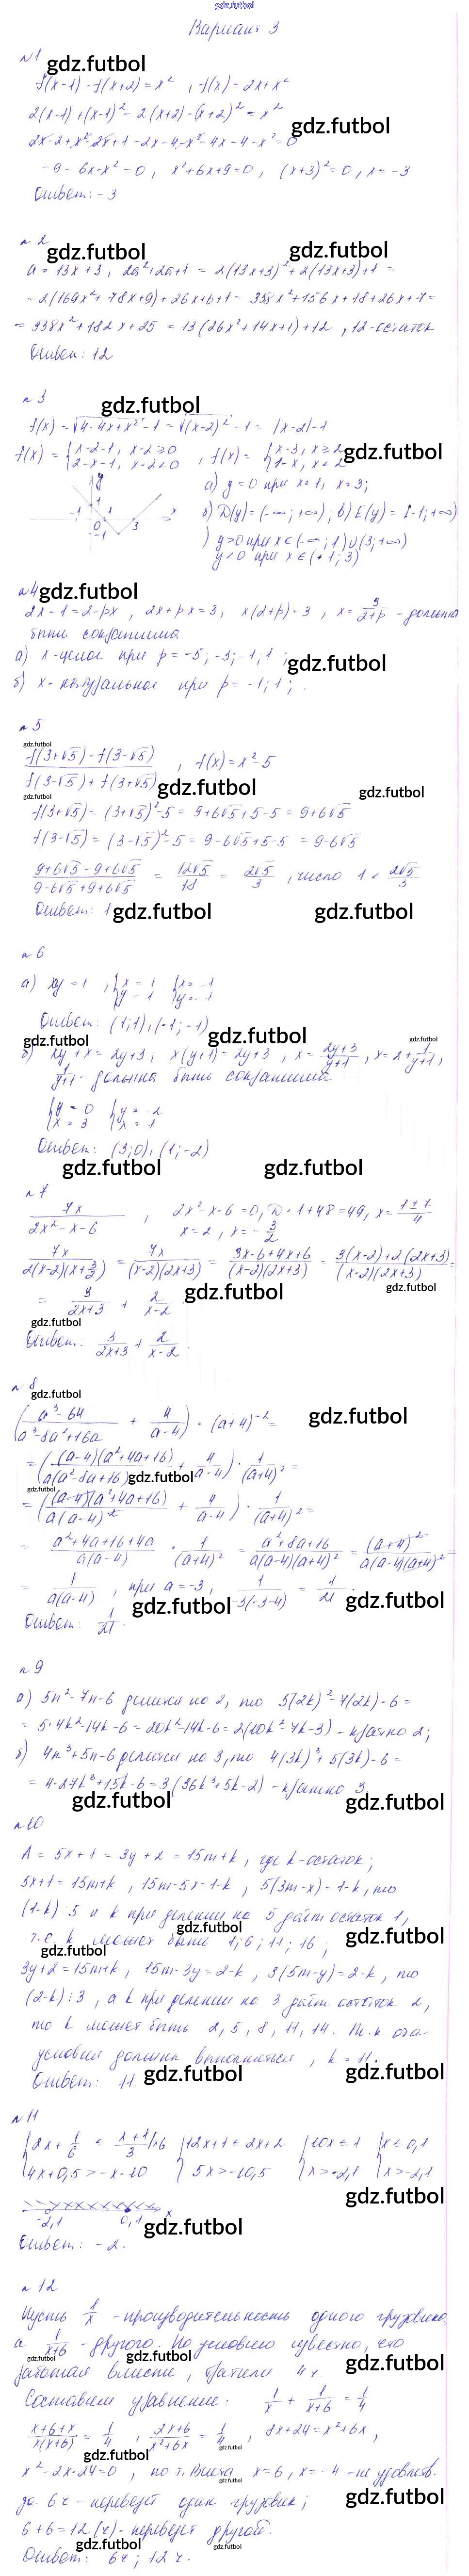 gdz.futbol
Вариант 3
№1
gdz.futbol
f(x-1) - f(x+2) = x², f(x) = 2x + x²
2(x-1) + (x-1)² - 2(x+2) - (x+2)² = x²
gdz.futbol
2x - 2 + x² - 2x + 1 - 2x - 4 - x² - 4x - 4 - x² = 0
-9 - 6x - x² = 0, x² + 6x + 9 = 0, (x+3)² = 0, x = -3
Ответ: -3
№2
gdz.futbol gdz.futbol
a = 13x + 3, 2a² + 2a + 1 = 2(13x+3)² + 2(13x+3) + 1 =
= 2(169x² + 78x + 9) + 26x + 6 + 1 = 338x² + 156x + 18 + 26x + 7 =
= 338x² + 182x + 25 = 13(26x² + 14x + 1) + 12, 12 - остаток
Ответ: 12
№3
gdz.futbol
f(x) = √(4-4x+x²) - 1 = √((x-2)²) - 1 = |x-2| - 1
f(x) = { x-2-1, x-2≥0 { 2-x-1, x-2<0 , f(x) = { x-3, x≥2 { 1-x, x<2
gdz.futbol
y -1 1 0 1 3 x -1
а) y = 0 при x = 1, x = 3;
б) D(y) = (-∞; +∞); в) E(y) = [-1; +∞)
) y>0 при x ∈ (-∞; 1) ∪ (3; +∞)
y<0 при x ∈ (1; 3)
№4
gdz.futbol
2x - 1 = 2 - px, 2x + px = 3, x(2+p) = 3, x = 3/(2+p) - должна
быть сократима
а) x - целое при p = -5; -3; -1; 1;
gdz.futbol
б) x - натуральное при p = -1; 1;.
№5
gdz.futbol
(f(3+√5) - f(3-√5)) / (f(3-√5) + f(3+√5)), f(x) = x² - 5
gdz.futbol gdz.futbol gdz.futbol
f(3+√5) = (3+√5)² - 5 = 9 + 6√5 + 5 - 5 = 9 + 6√5
f(3-√5) = (3-√5)² - 5 = 9 - 6√5 + 5 - 5 = 9 - 6√5
(9+6√5-9+6√5)/(9-6√5+9+6√5) = 12√5/18 = 2√5/3, число 1 < 2√5/3
Ответ: 1
gdz.futbol gdz.futbol
№6
а) xy = 1, { x = 1 { y = 1 { x = -1 { y = -1
Ответ: (1;1), (-1;-1)
gdz.futbol gdz.futbol gdz.futbol
б) xy + x = 2y + 3, x(y+1) = 2y + 3, x = (2y+3)/(y+1), x = 2 + 1/(y+1),
1/(y+1) - должна быть сократимой
{ y = 0 { x = 3 { y = -2 { x = 1
Ответ: (3;0), (1;-2)
gdz.futbol gdz.futbol
№7
7x/(2x²-x-6), 2x² - x - 6 = 0, D = 1 + 48 = 49, x = (1±7)/4
x = 2, x = -3/2
7x/(2(x-2)(x+3/2)) = 7x/((x-2)(2x+3)) = (3x-6+4x+6)/((x-2)(2x+3)) = (3(x-2)+2(2x+3))/((x-2)(2x+3)) =
gdz.futbol
= 3/(2x+3) + 2/(x-2)
gdz.futbol
gdz.futbol
Ответ: 3/(2x+3) + 2/(x-2).
№8
gdz.futbol
((a³-64)/(a³-8a²+16a) + 4/(a-4)) · (a+4)⁻² =
gdz.futbol
= ((a-4)(a²+4a+16)/(a(a²-8a+16)) + 4/(a-4)) · 1/(a+4)² =
gdz.futbol
gdz.futbol
= ((a-4)(a²+4a+16)/(a(a-4)²) + 4/(a-4)) · 1/(a+4)² =
= (a²+4a+16+4a)/(a(a-4)) · 1/(a+4)² = (a²+8a+16)/(a(a-4)(a+4)²) = (a+4)²/(a(a-4)(a+4)²) =
= 1/(a(a-4)), при a = -3, 1/(-3(-3-4)) = 1/21.
gdz.futbol gdz.futbol
Ответ: 1/21.
№9
а) 5n² - 7n - 6 делится на 2, то 5(2k)² - 7(2k) - 6 =
= 5·4k² - 14k - 6 = 20k² - 14k - 6 = 2(10k² - 7k - 3) - кратно 2;
б) 4n³ + 5n - 6 делится на 3, то 4(3k)³ + 5(3k) - 6 =
= 4·27k³ + 15k - 6 = 3(36k³ + 5k - 2) - кратно 3
gdz.futbol gdz.futbol
№10
A = 5x + 1 = 3y + 2 = 15m + k, где k - остаток;
5x + 1 = 15m + k, 15m - 5x = 1 - k, 5(3m - x) = 1 - k, то
(1-k)⋮5 и k при делении на 5 даёт остаток 1,
gdz.futbol gdz.futbol
т.е. k может быть 1; 6; 11; 16;
gdz.futbol
3y + 2 = 15m + k, 15m - 3y = 2 - k, 3(5m - y) = 2 - k, то
(2-k)⋮3, а k при делении на 3 даёт остаток 2,
то k может быть 2, 5, 8, 11, 14. Т.к. оба
условия должны выполняться, k = 11.
Ответ: 11.
gdz.futbol gdz.futbol
№11
{ 2x + 1/6 ≤ (x+1)/3 |·6 { 4x + 0,5 > -x - 10 { 12x + 1 ≤ 2x + 2 { 5x > -10,5 { 10x ≤ 1 { x > -2,1 { x ≤ 0,1 { x > -2,1
gdz.futbol
-2,1 0,1 x
gdz.futbol
Ответ: -2.
№12
Пусть 1/x - производительность одного грузовика,
а 1/(x+6) - другого. По условию известно, что
gdz.futbol gdz.futbol gdz.futbol
работая вместе, тратили 4 ч.
Составим уравнение: 1/x + 1/(x+6) = 1/4
gdz.futbol
(x+6+x)/(x(x+6)) = 1/4, (2x+6)/(x²+6x) = 1/4, 8x + 24 = x² + 6x,
gdz.futbol gdz.futbol
x² - 2x - 24 = 0, по т. Виета x = 6, x = -4 - не удовлетв.
gdz.futbol
за 6 ч - перевезёт один грузовик;
gdz.futbol
6 + 6 = 12 (ч) - перевезёт другой.
gdz.futbol gdz.futbol
Ответ: 6 ч; 12 ч.